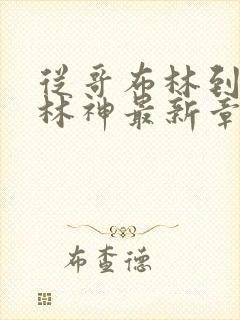 从哥布林到
林神最新章
布查德